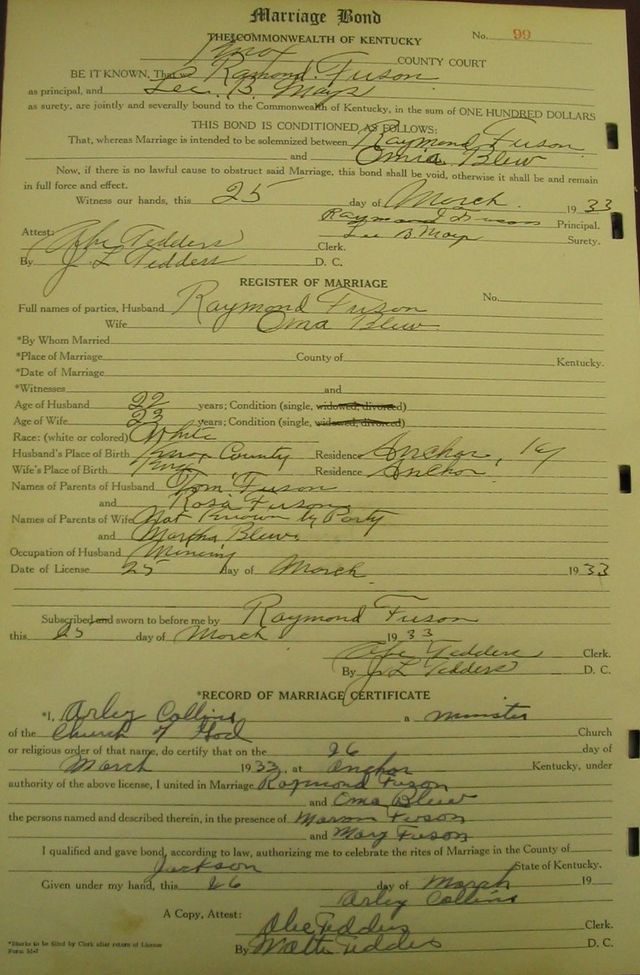 Marriage Bond
THE COMMONWEALTH OF KENTUCKY No. 99
Knox COUNTY COURT
BE IT KNOWN, That we Raymond Fuson
as principal, and Lee B. Mays
as surety, are jointly and severally bound to the Commonwealth of Kentucky, in the sum of ONE HUNDRED DOLLARS
THIS BOND IS CONDITIONED AS FOLLOWS:
That, whereas Marriage is intended to be solemnized between Raymond Fuson
and Oma Blew
Now, if there is no lawful cause to obstruct said Marriage, this bond shall be void, otherwise it shall be and remain
in full force and effect.
Witness our hands, this 25 day of March 1933
Raymond Fuson Principal.
Attest: Lee B. Mays Surety.
Abe Tedders Clerk.
By J. L. Tedders D. C.
REGISTER OF MARRIAGE
Full names of parties, Husband Raymond Fuson No.
Wife Oma Blew
*By Whom Married
*Place of Marriage County of Kentucky.
*Date of Marriage
*Witnesses and
Age of Husband 22 years; Condition (single, widowed, divorced)
Age of Wife 23 years; Condition (single, widowed, divorced)
Race: (white or colored) White
Husband's Place of Birth Knox County Residence Anchor, Ky
Wife's Place of Birth Knox Residence Anchor
Names of Parents of Husband Tom Fuson
and Rosa Fuson
Names of Parents of Wife Not Known by Party
and Martha Blew
Occupation of Husband Mining
Date of License 25 day of March 1933
Subscribed and sworn to before me by Raymond Fuson
this 25 day of March 1933
Abe Tedders Clerk.
By J L Tedders D. C.
*RECORD OF MARRIAGE CERTIFICATE
*I, Arley Collins a minister
of the Church of God Church
or religious order of that name, do certify that on the 26 day of
March 1933, at Anchor Kentucky, under
authority of the above license, I united in Marriage Raymond Fuson
and Oma Blew
the persons named and described therein, in the presence of Fuson
and Mary Fuson
I qualified and gave bond, according to law, authorizing me to celebrate the rites of Marriage in the County of
Jackson State of Kentucky.
Given under my hand, this 26 day of March 19
Arley Collins
A Copy, Attest: Abe Tedders Clerk.
By Tedders D. C.
*Blanks to be filled by Clerk after return of License